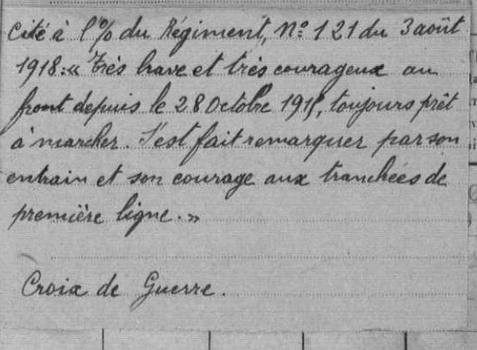 Cité à l'O/o du Régiment, N° 121 du 3 août
1918 : « Très brave et très courageux au
front depuis le 28 Octobre 1915, toujours prêt
à marcher. S'est fait remarquer par son
entrain et son courage aux tranchées de
première ligne. »
Croix de Guerre.